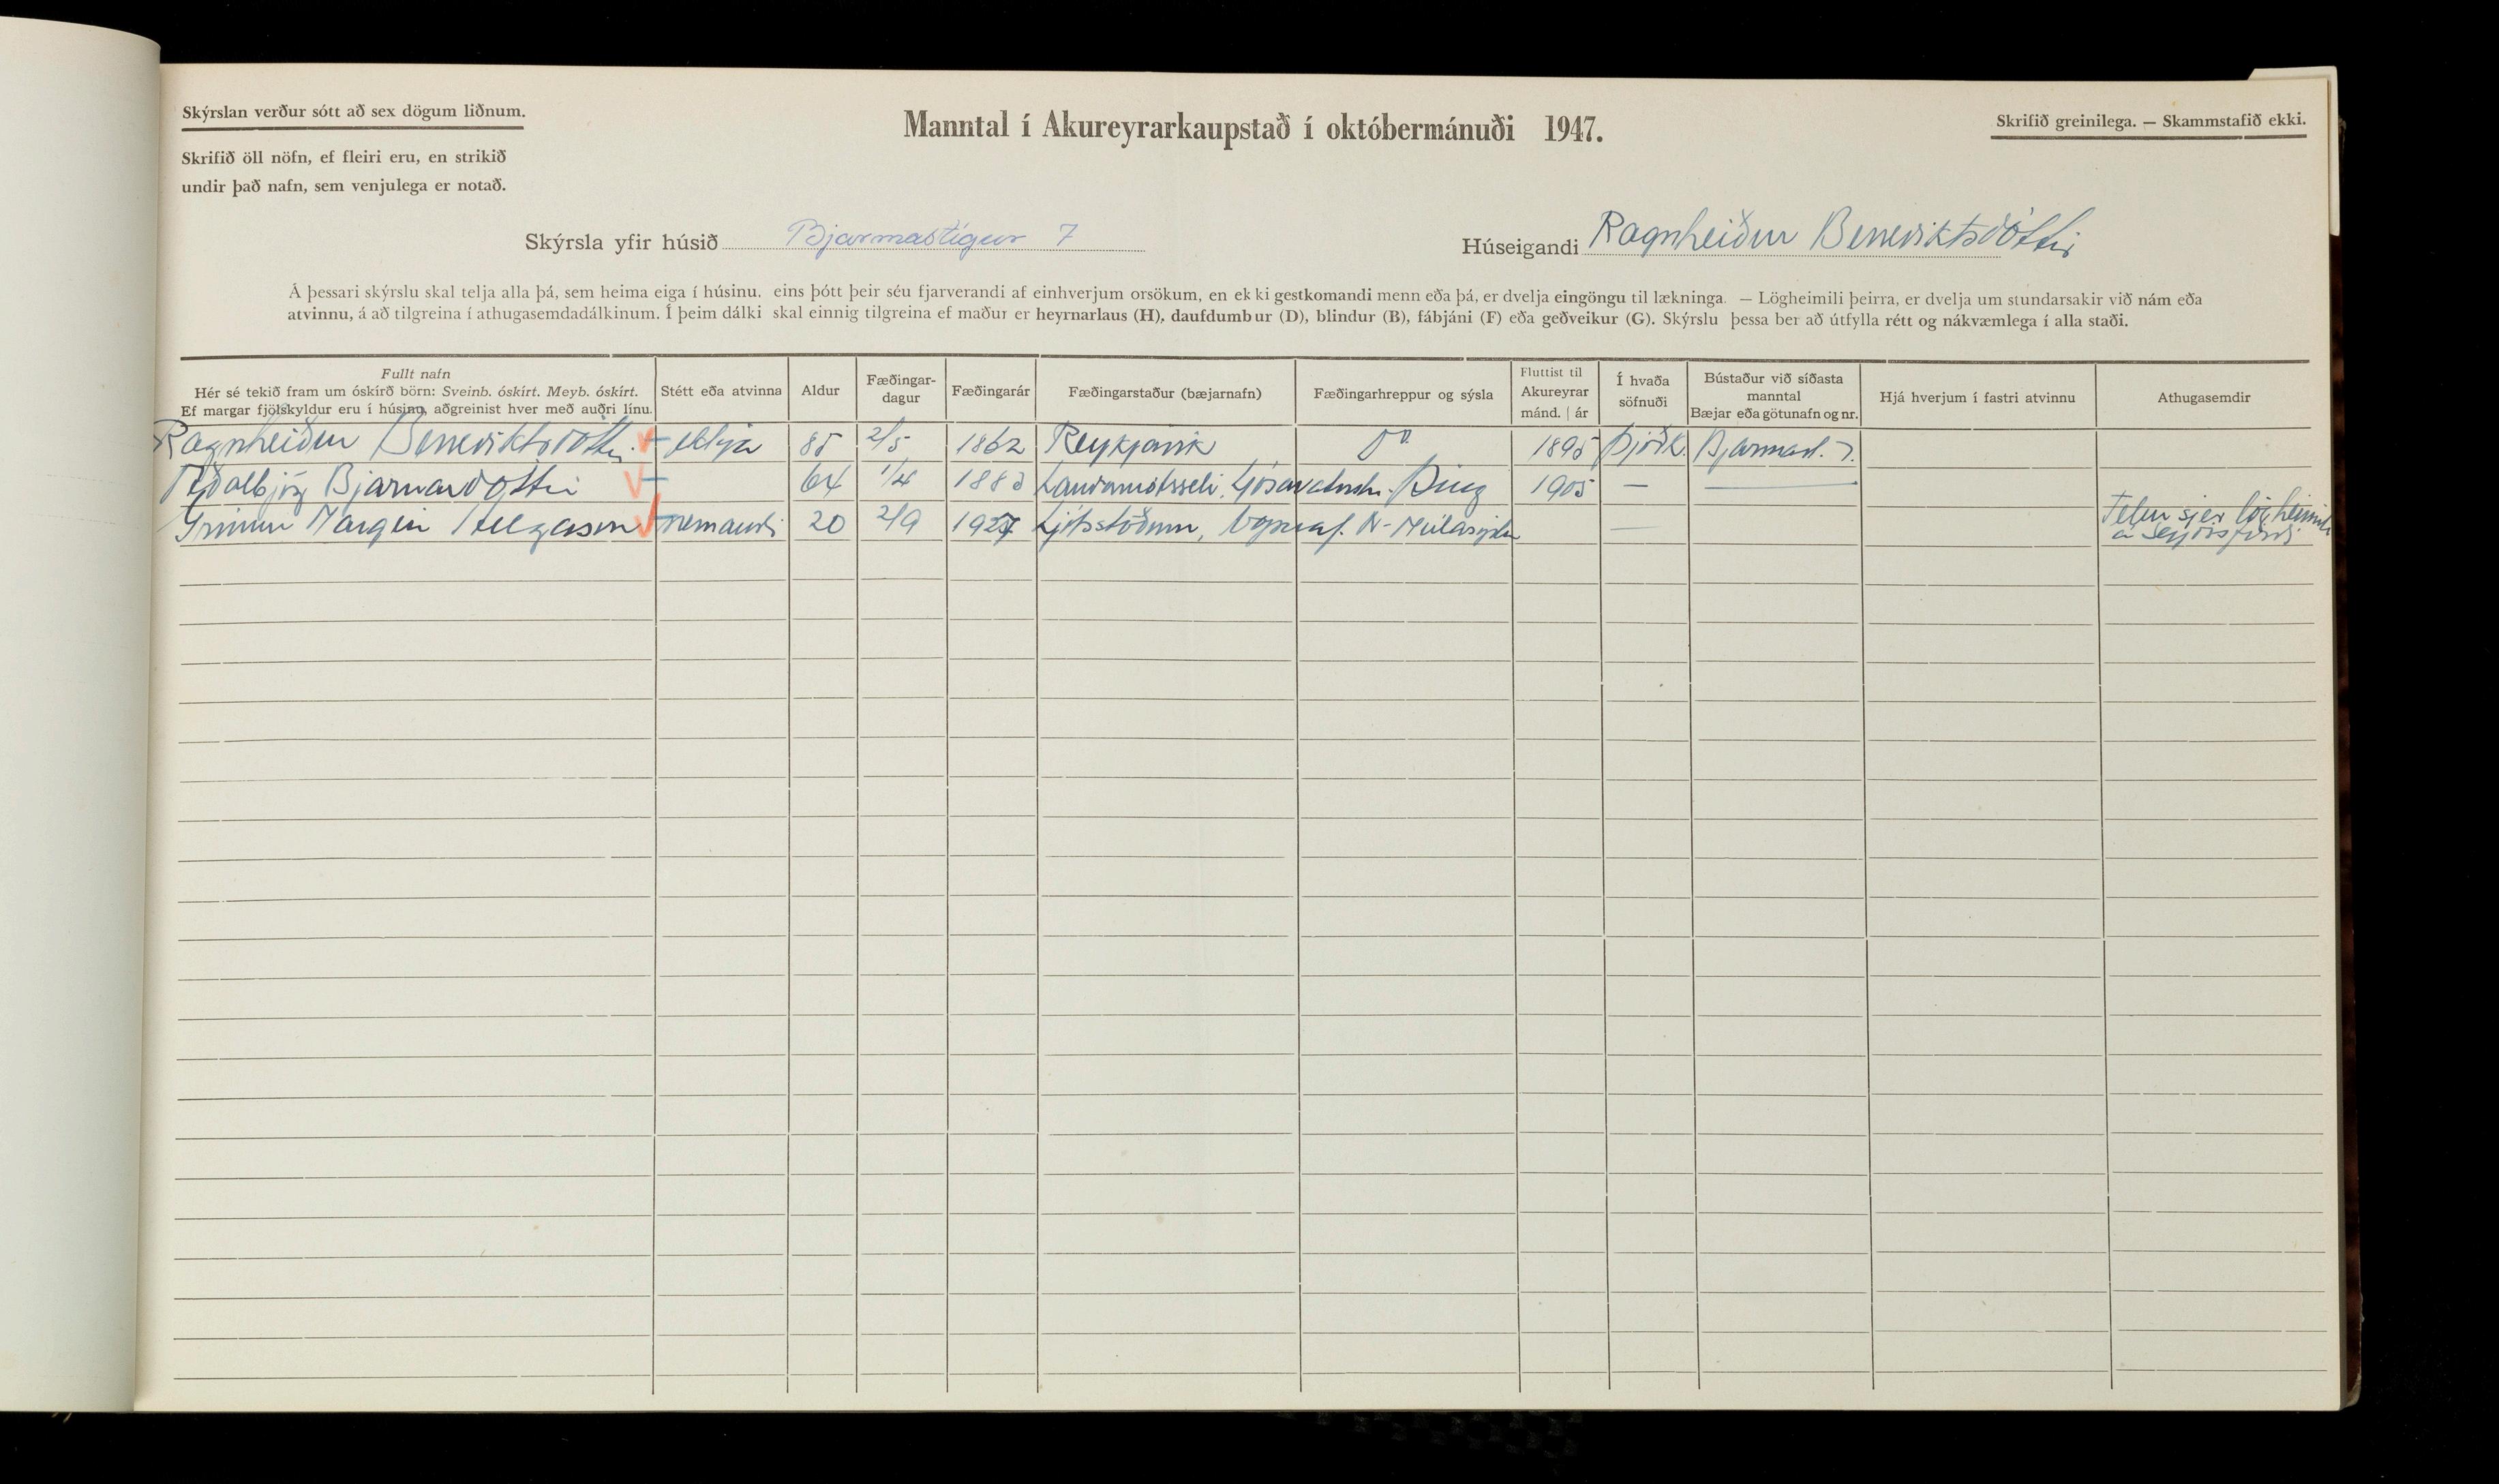 Skýrslan verður sótt að sex dögum liðnum.
Manntal í Akureyrarkaupstað í októbermánuði 1947.
Skrifið greinilega. — Skammstafið ekki.
Skrifið öll nöfn, ef fleiri eru, en strikið
undir það nafn, sem venjulega er notað.
Skýrsla yfir húsið Bjarmastígur 7
Húseigandi Ragnheiður Benediktsdóttir
Á þessari skýrslu skal telja alla þá, sem heima eiga í húsinu, eins þótt þeir séu fjarverandi af einhverjum orsökum, en ekki gestkomandi menn eða þá, er dvelja eingöngu til lækninga. — Lögheimili þeirra, er dvelja um stundarsakir við nám eða
atvinnu, á að tilgreina í athugasemdadálkinum. Í þeim dálki skal einnig tilgreina ef maður er heyrnarlaus (H), daufdumbur (D), blindur (B), fábjáni (F) eða geðveikur (G). Skýrslu þessa ber að útfylla rétt og nákvæmlega í alla staði.
Fullt nafn
Hér sé tekið fram um óskírð börn: Sveinb. óskírt. Meyb. óskírt.
Ef margar fjölskyldur eru í húsinu, aðgreinist hver með auðri línu.
Stétt eða atvinna
Aldur
Fæðingar-
dagur
Fæðingarár
Fæðingarstaður (bæjarnafn)
Fæðingarhreppur og sýsla
Fluttist til
Akureyrar
mánd. | ár
Í hvaða
söfnuði
Bústaður við síðasta
manntal
Bæjar eða götunafn og nr.
Hjá hverjum í fastri atvinnu
Athugasemdir
Ragnheiður Benediktsdóttir ekkja 85 2/5 1862 Reykjavík Do 1895 Þjóðk. Bjarmast. 7.
Aðalbjörg Bjarnardóttir 64 1/4 1883 Landamótsseli, Ljósavatnshr. Þing 1905 —
Grímur Margeir Helgason nemandi 20 2/9 1927 Ljótsstöðum, Vopnaf. N-Múlasýslu —
Telur sjer lögheimili
á Seyðisfirði.